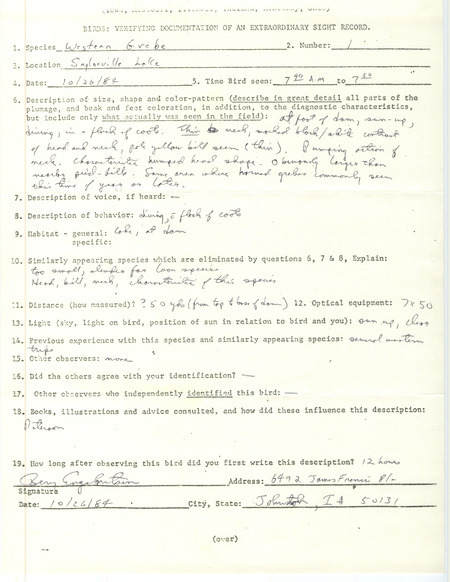 BIRDS: VERIFYING DOCUMENTATION OF AN EXTRAORDINARY SIGHT RECORD.
1. Species Western Grebe 2. Number: 1
3. Location Saylorville Lake
4. Date: 10/26/84 5. Time Bird seen: 7 A.M to 7
6. Description of size, shape and color-pattern (describe in great detail all parts of the
plumage, and beak and feet coloration, in addition, to the diagnostic characteristics,
but include only what actually was seen in the field): at foot of dam, sun-up,
diving, in a flock of coots. neck, marked black/white contrast
of head and neck, yellow bill seen (thin). Pumping action of
neck. Characteristic humped head shape. Obviously larger than
nearby pied-bills. Same area where horned grebes commonly seen
this time of year on lakes.
7. Description of voice, if heard: —
8. Description of behavior: diving, c̄ flock of coots
9. Habitat - general: lake, at dam
specific:
10. Similarly appearing species which are eliminated by questions 6, 7 & 8, Explain:
too small, slender for loon species
Head, bill, neck, characteristic of this species
11. Distance (how measured)? ? 50 yds (from top to base of dam) 12. Optical equipment: 7x50
13. Light (sky, light on bird, position of sun in relation to bird and you): sun up, clear
14. Previous experience with this species and similarly appearing species: several western
trips
15. Other observers: none
16. Did the others agree with your identification? —
17. Other observers who independently identified this bird: —
18. Books, illustrations and advice consulted, and how did these influence this description:
Peterson
19. How long after observing this bird did you first write this description? 12 hours
Address: 6492
Signature
Date: 10/26/84 City, State: Johnston, IA 50131
(over)